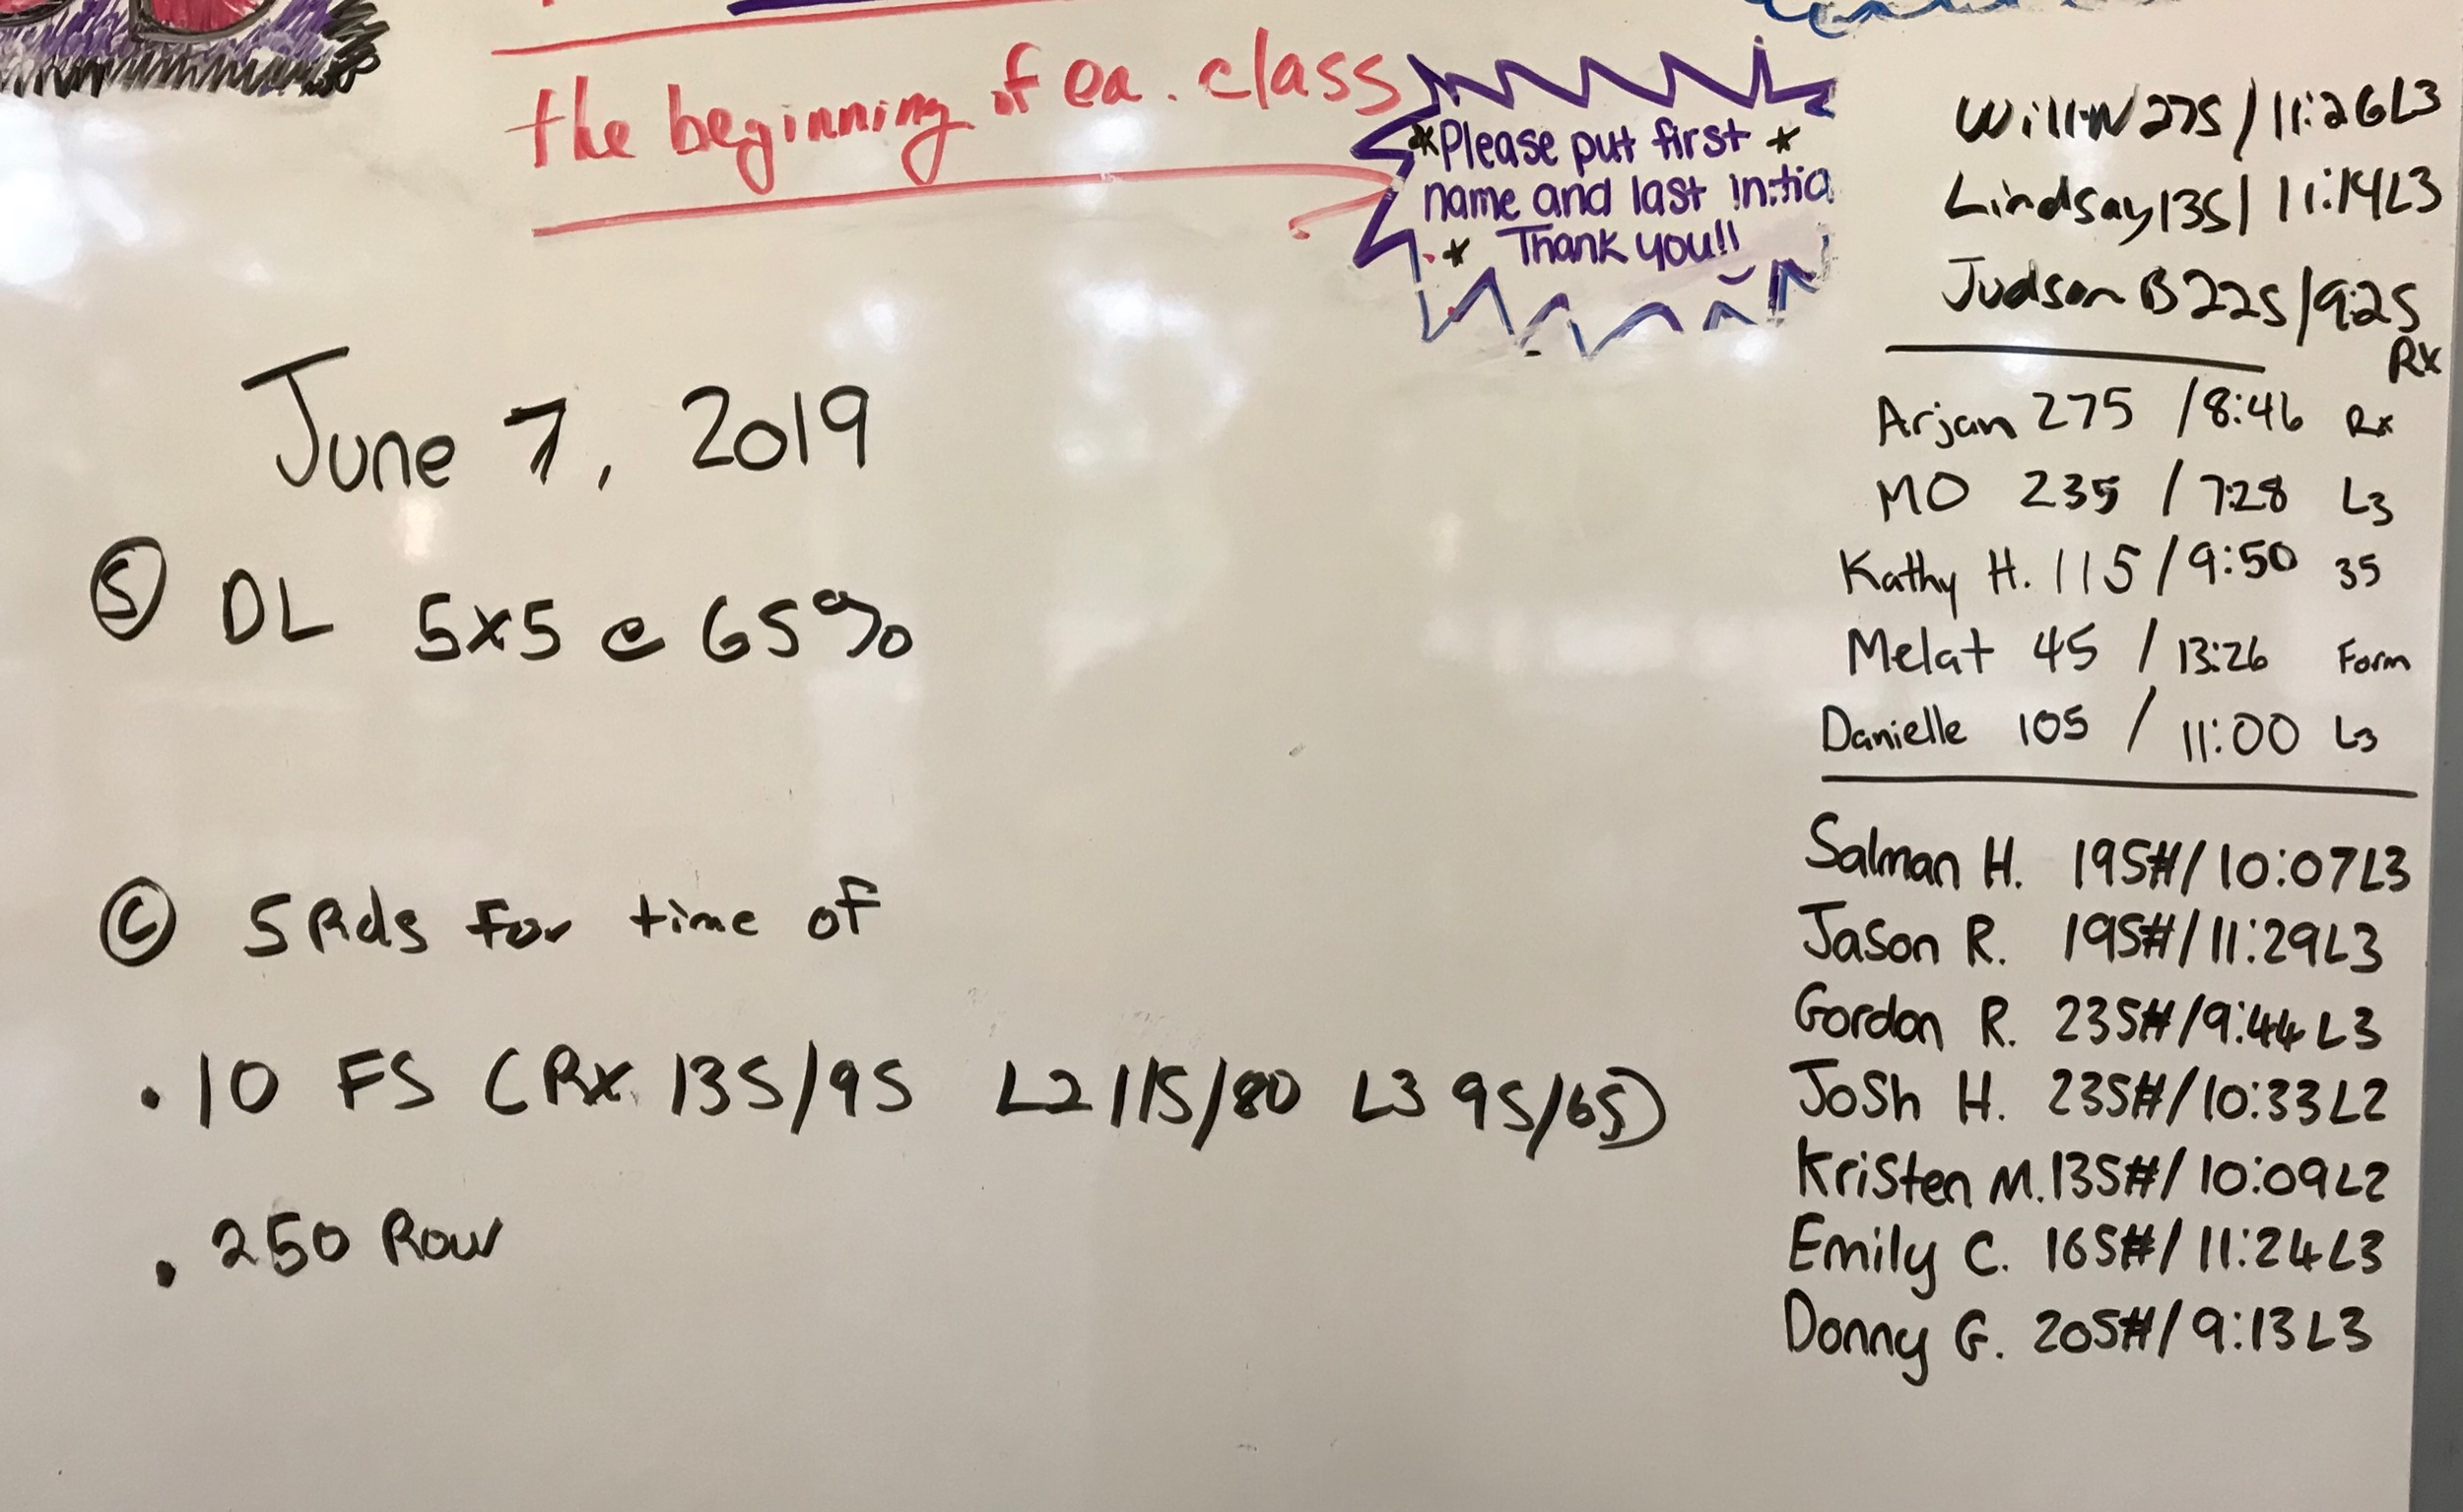 the beginning of ea. class
*Please put first *
name and last initia
* Thank you!!
June 7, 2019
Ⓢ DL 5x5 @ 65%
Ⓒ 5 Rds for time of
• 10 FS (Rx 135/95 L2 115/80 L3 95/65)
• 250 Row
Will W 275 / 11:26 L3
Lindsay 135 / 11:14 L3
Judson B 225 / 9:25
Rx
Arjan 275 / 8:46 Rx
MO 235 / 7:28 L3
Kathy H. 115 / 9:50 35
Melat 45 / 13:26 Form
Danielle 105 / 11:00 L3
Salman H. 195# / 10:07 L3
Jason R. 195# / 11:29 L3
Gordon R. 235# / 9:44 L3
Josh H. 235# / 10:33 L2
Kristen M. 135# / 10:09 L2
Emily C. 165# / 11:24 L3
Donny G. 205# / 9:13 L3